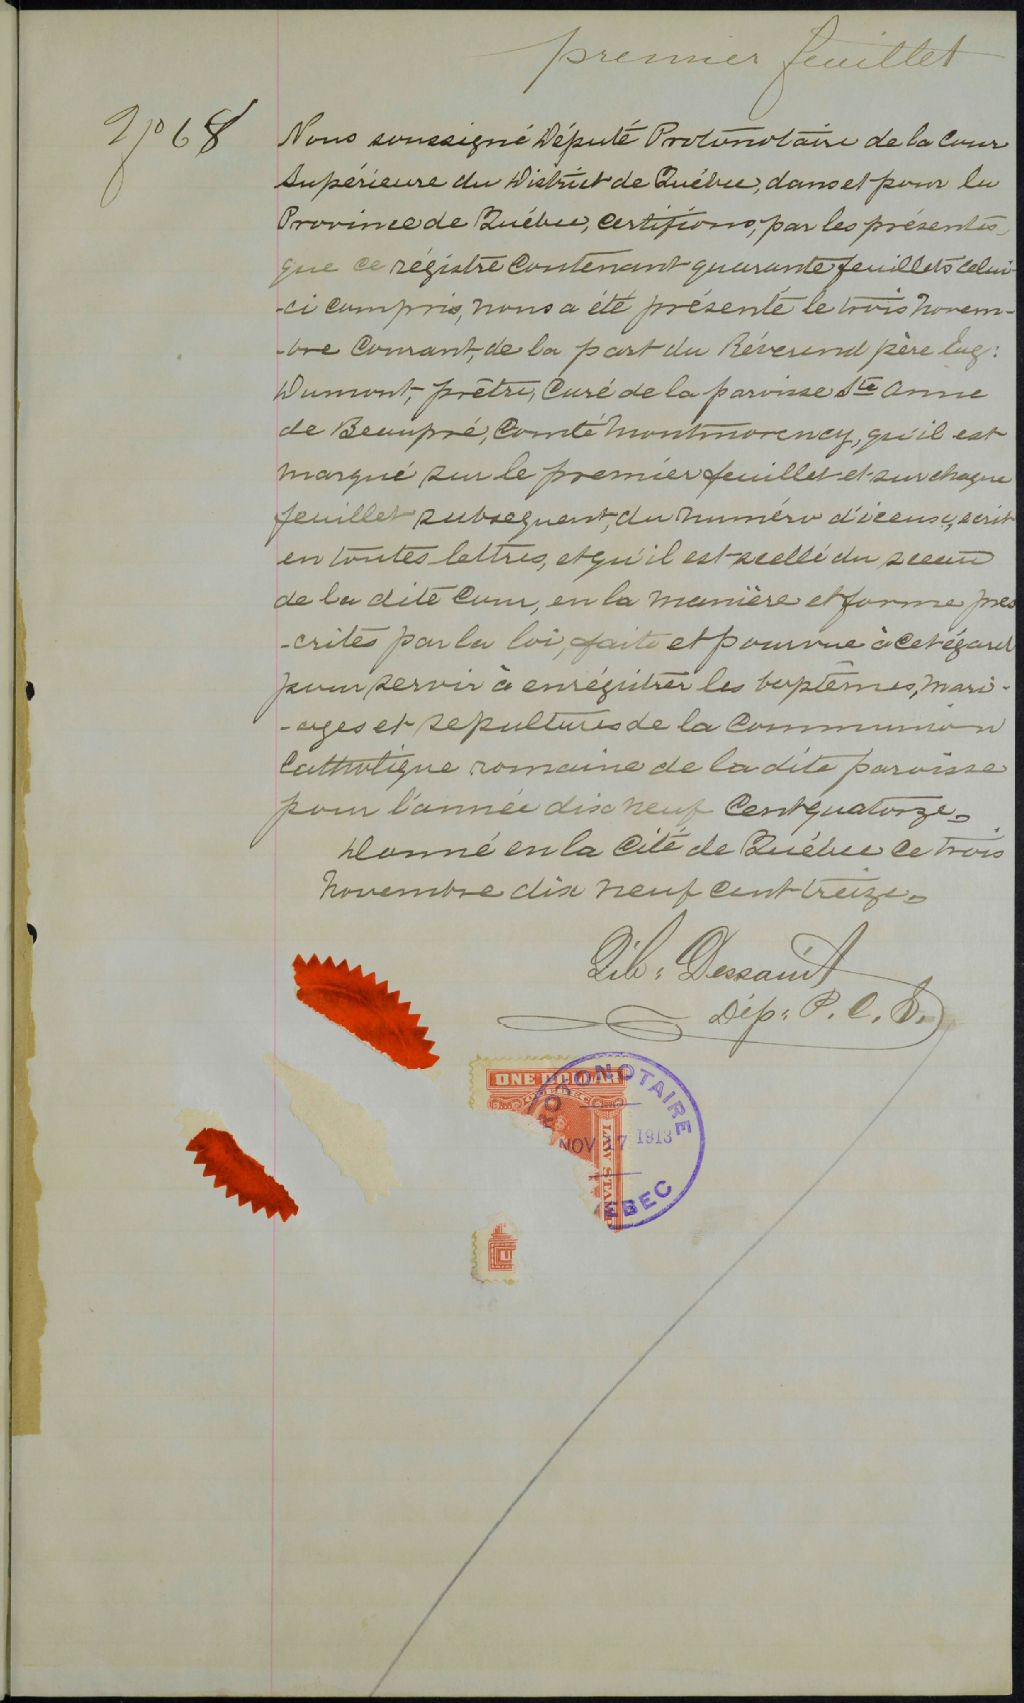 premier feuillet
No 68
Nous soussigné Député Protonotaire de la Cour
Supérieure du District de Québec, dans et pour la
Province de Québec, certifions, par les présentes,
que ce régistre contenant quarante feuillets celui-
-ci compris, nous a été présenté le trois Novem-
-bre Courant, de la part du Révérend père Eug:
Dumont, prêtre, Curé de la paroisse Ste Anne
de Beaupré, Comté Montmorency, qu'il est
marqué sur le premier feuillet et sur chaque
feuillet subsequent, du numéro d'iceux, écrit
en toutes lettres, et qu'il est scellé du sceau
de la dite Cour, en la manière et forme pres
-crites par la loi, faite et pourvue à cet égard
pour servir à enrégistrer les baptêmes, mari-
-ages et sepultures de la Communion
Catholique romaine de la dite paroisse
pour l'année dix neuf Cent quatorze.
Donné en la Cité de Québec ce trois
Novembre dix neuf cent treize.
Gib: Dessault
Dép: P. C. S.
ONE DOLLAR
LAW STAM
ROTONOTAIRE
NOV 17 1913
EBEC